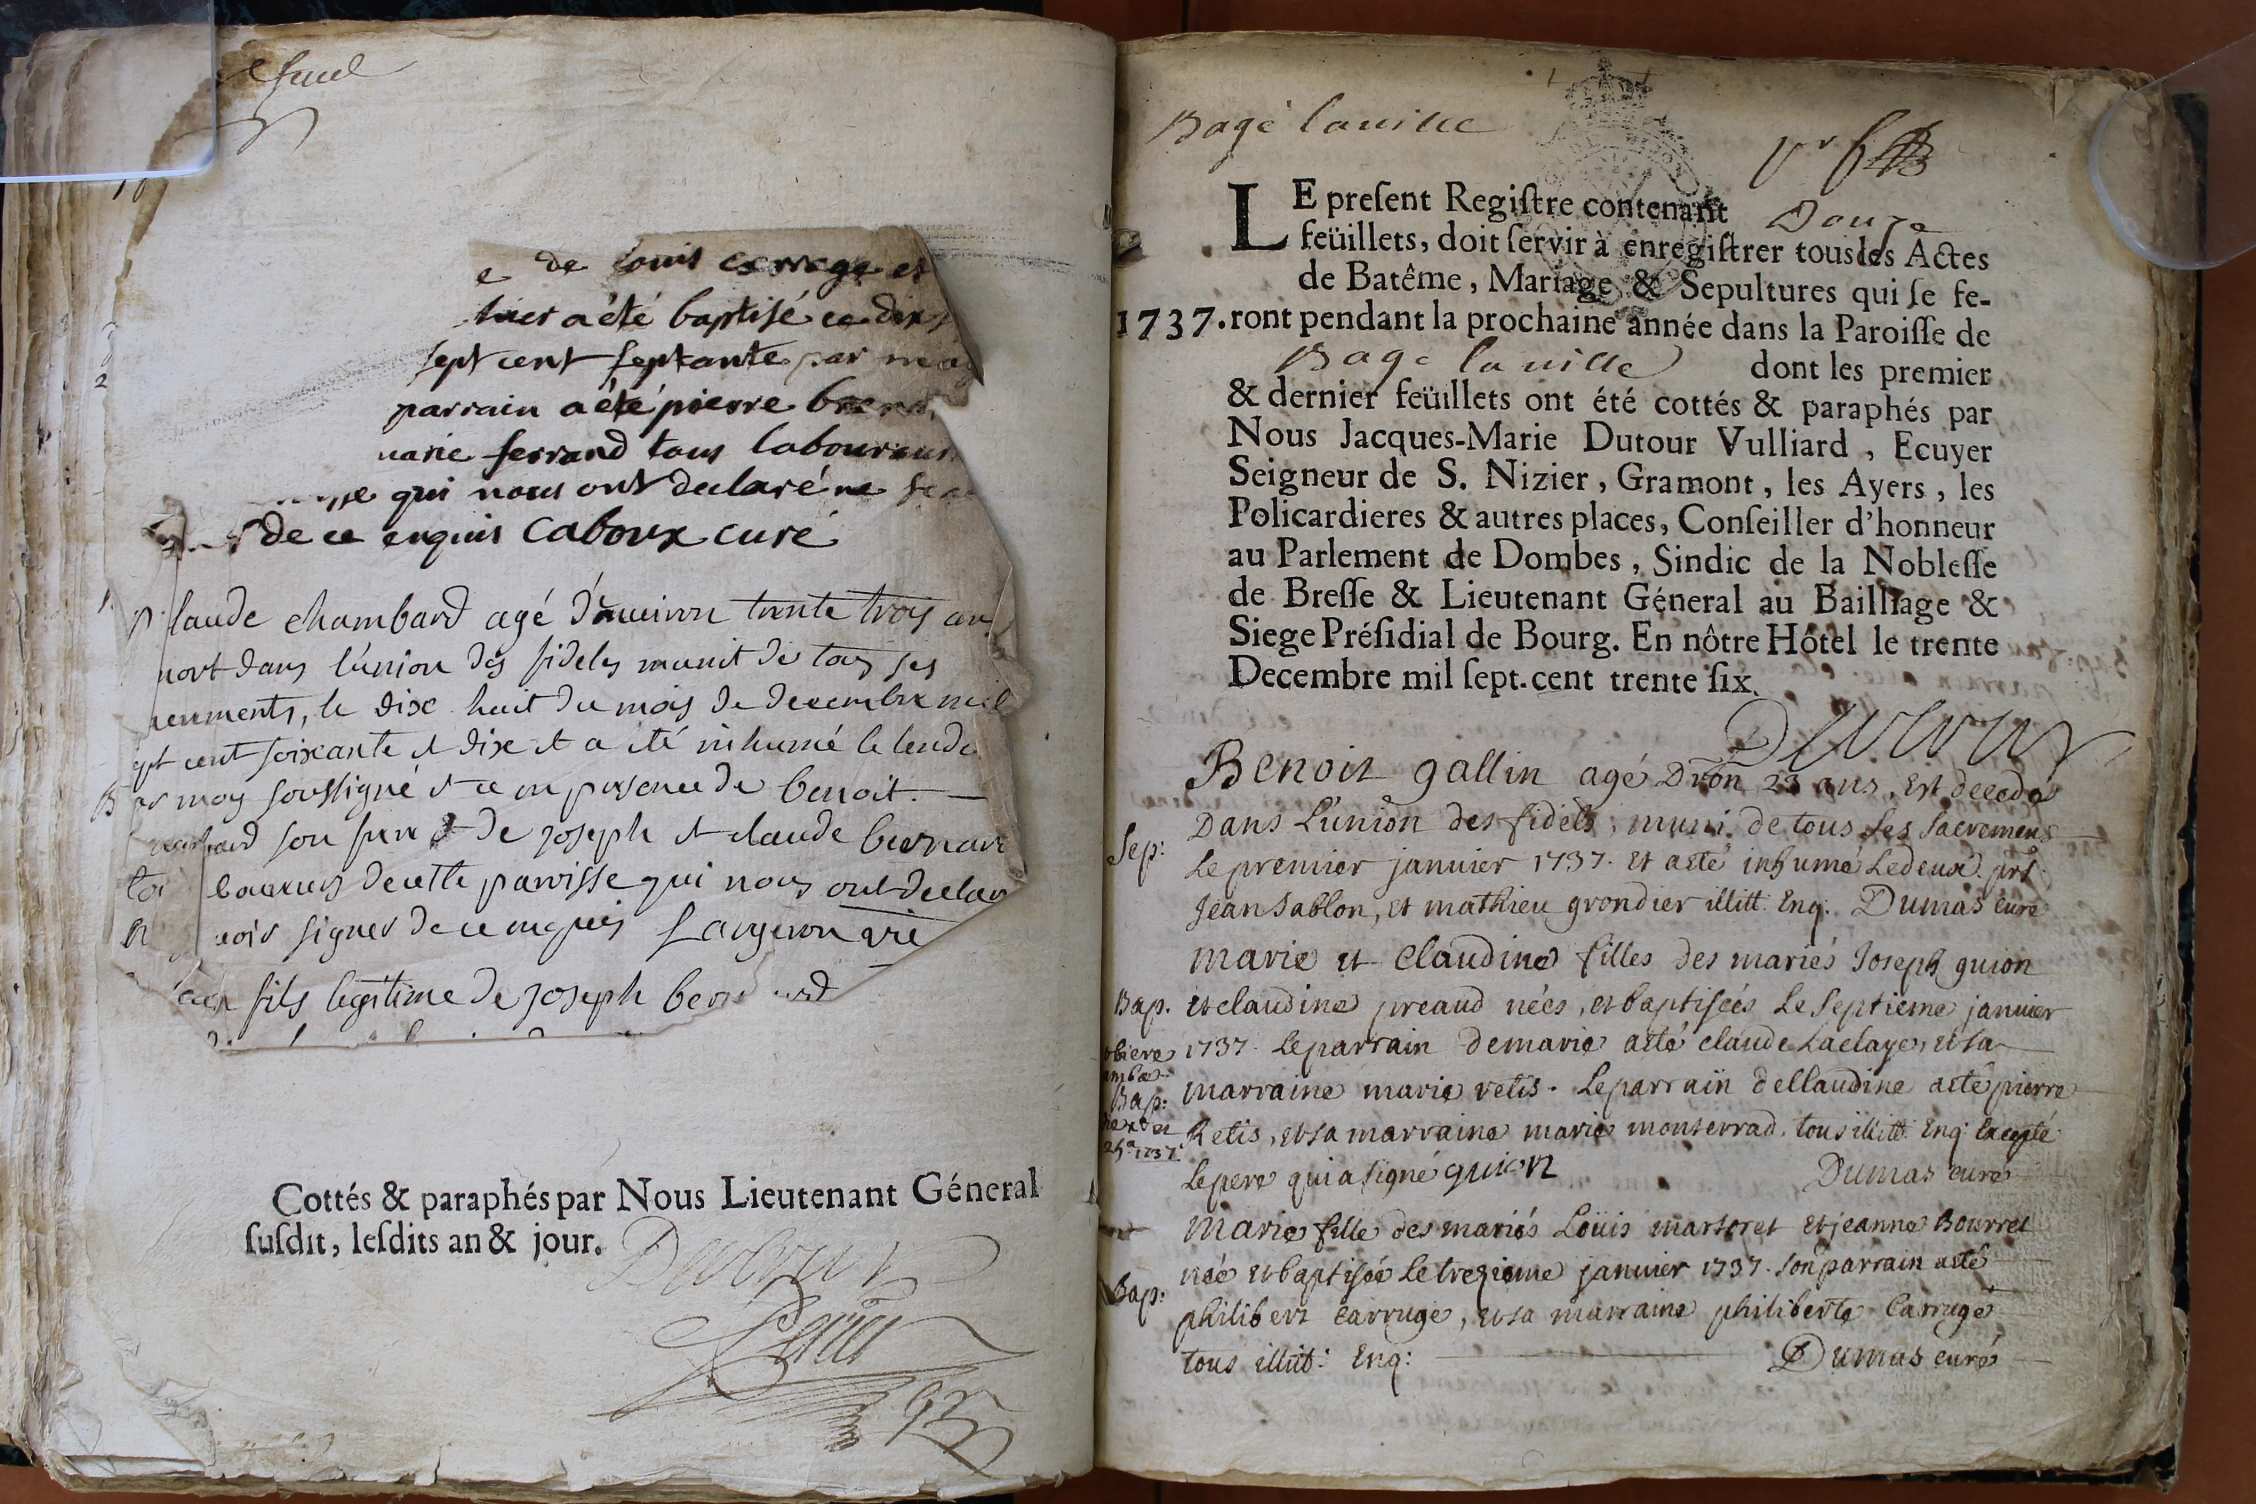 de Louis carruge et
a été baptisé ce dix
sept cent septante par
parrain a été pierre
marie ferrand tous laboureurs
qui nous ont declaré ne
de ce enquis Caboux curé
laude chambard agé d'environ trente trois an
mort dans l'union des fideles munit de tous ses
le dix huit du mois de decembre mil
sept cent soixante et dix et a été inhumé le lende
par moy soussigné et ce en presence de benoit
son frere et de joseph et claude bernard
de cette paroisse qui nous ont declar
signer de ce enquis
fils legitime de joseph
Cottés & paraphés par Nous Lieutenant Géneral
ſuſdit, leſdits an & jour.
Bagé la uille
LE preſent Regiſtre contenant Douze
feüillets, doit ſervir à enregiſtrer tous les Actes
de Batême, Mariage & Sepultures qui ſe fe-
1737. ront pendant la prochaine année dans la Paroiſſe de
Bagé la uille dont les premier
& dernier feüillets ont été cottés & paraphés par
Nous Jacques-Marie Dutour Vulliard, Ecuyer
Seigneur de S. Nizier, Gramont, les Ayers, les
Policardieres & autres places, Conſeiller d'honneur
au Parlement de Dombes, Sindic de la Nobleſſe
de Breſſe & Lieutenant Géneral au Bailliage &
Siege Préſidial de Bourg. En nôtre Hôtel le trente
Decembre mil ſept-cent trente ſix.
Benoit gallin agé D'ron 23 ans, est decedé
Dans L'union des fidels, muni de tous Ses Sacremens
Sep: Le premier januier 1737. et a eté inhumé Le deux. prs
Jean Sablon, et mathieu grondier illitt. Enq. Dumas curé
marie et Claudine filles des mariés Joseph guion
Bap. et claudine preaud nées, et baptisées Le Septieme januier
1737. Le parrain de marie a eté claude Laclaye, et sa
marraine marie retis. Le parrain de Claudine a eté pierre
Bap: Retis, et sa marraine marie monterrad, tous illitt. Enq. Excepté
Le pere qui a signé guion Dumas curé
marie fille des mariés Loüis martoret et jeanne Bourret
Bap: née et baptisée Le trezieme januier 1737. son parrain a eté
philibert carruge, et sa marraine philiberte Carruge
tous illitt: Enq: Dumas curé